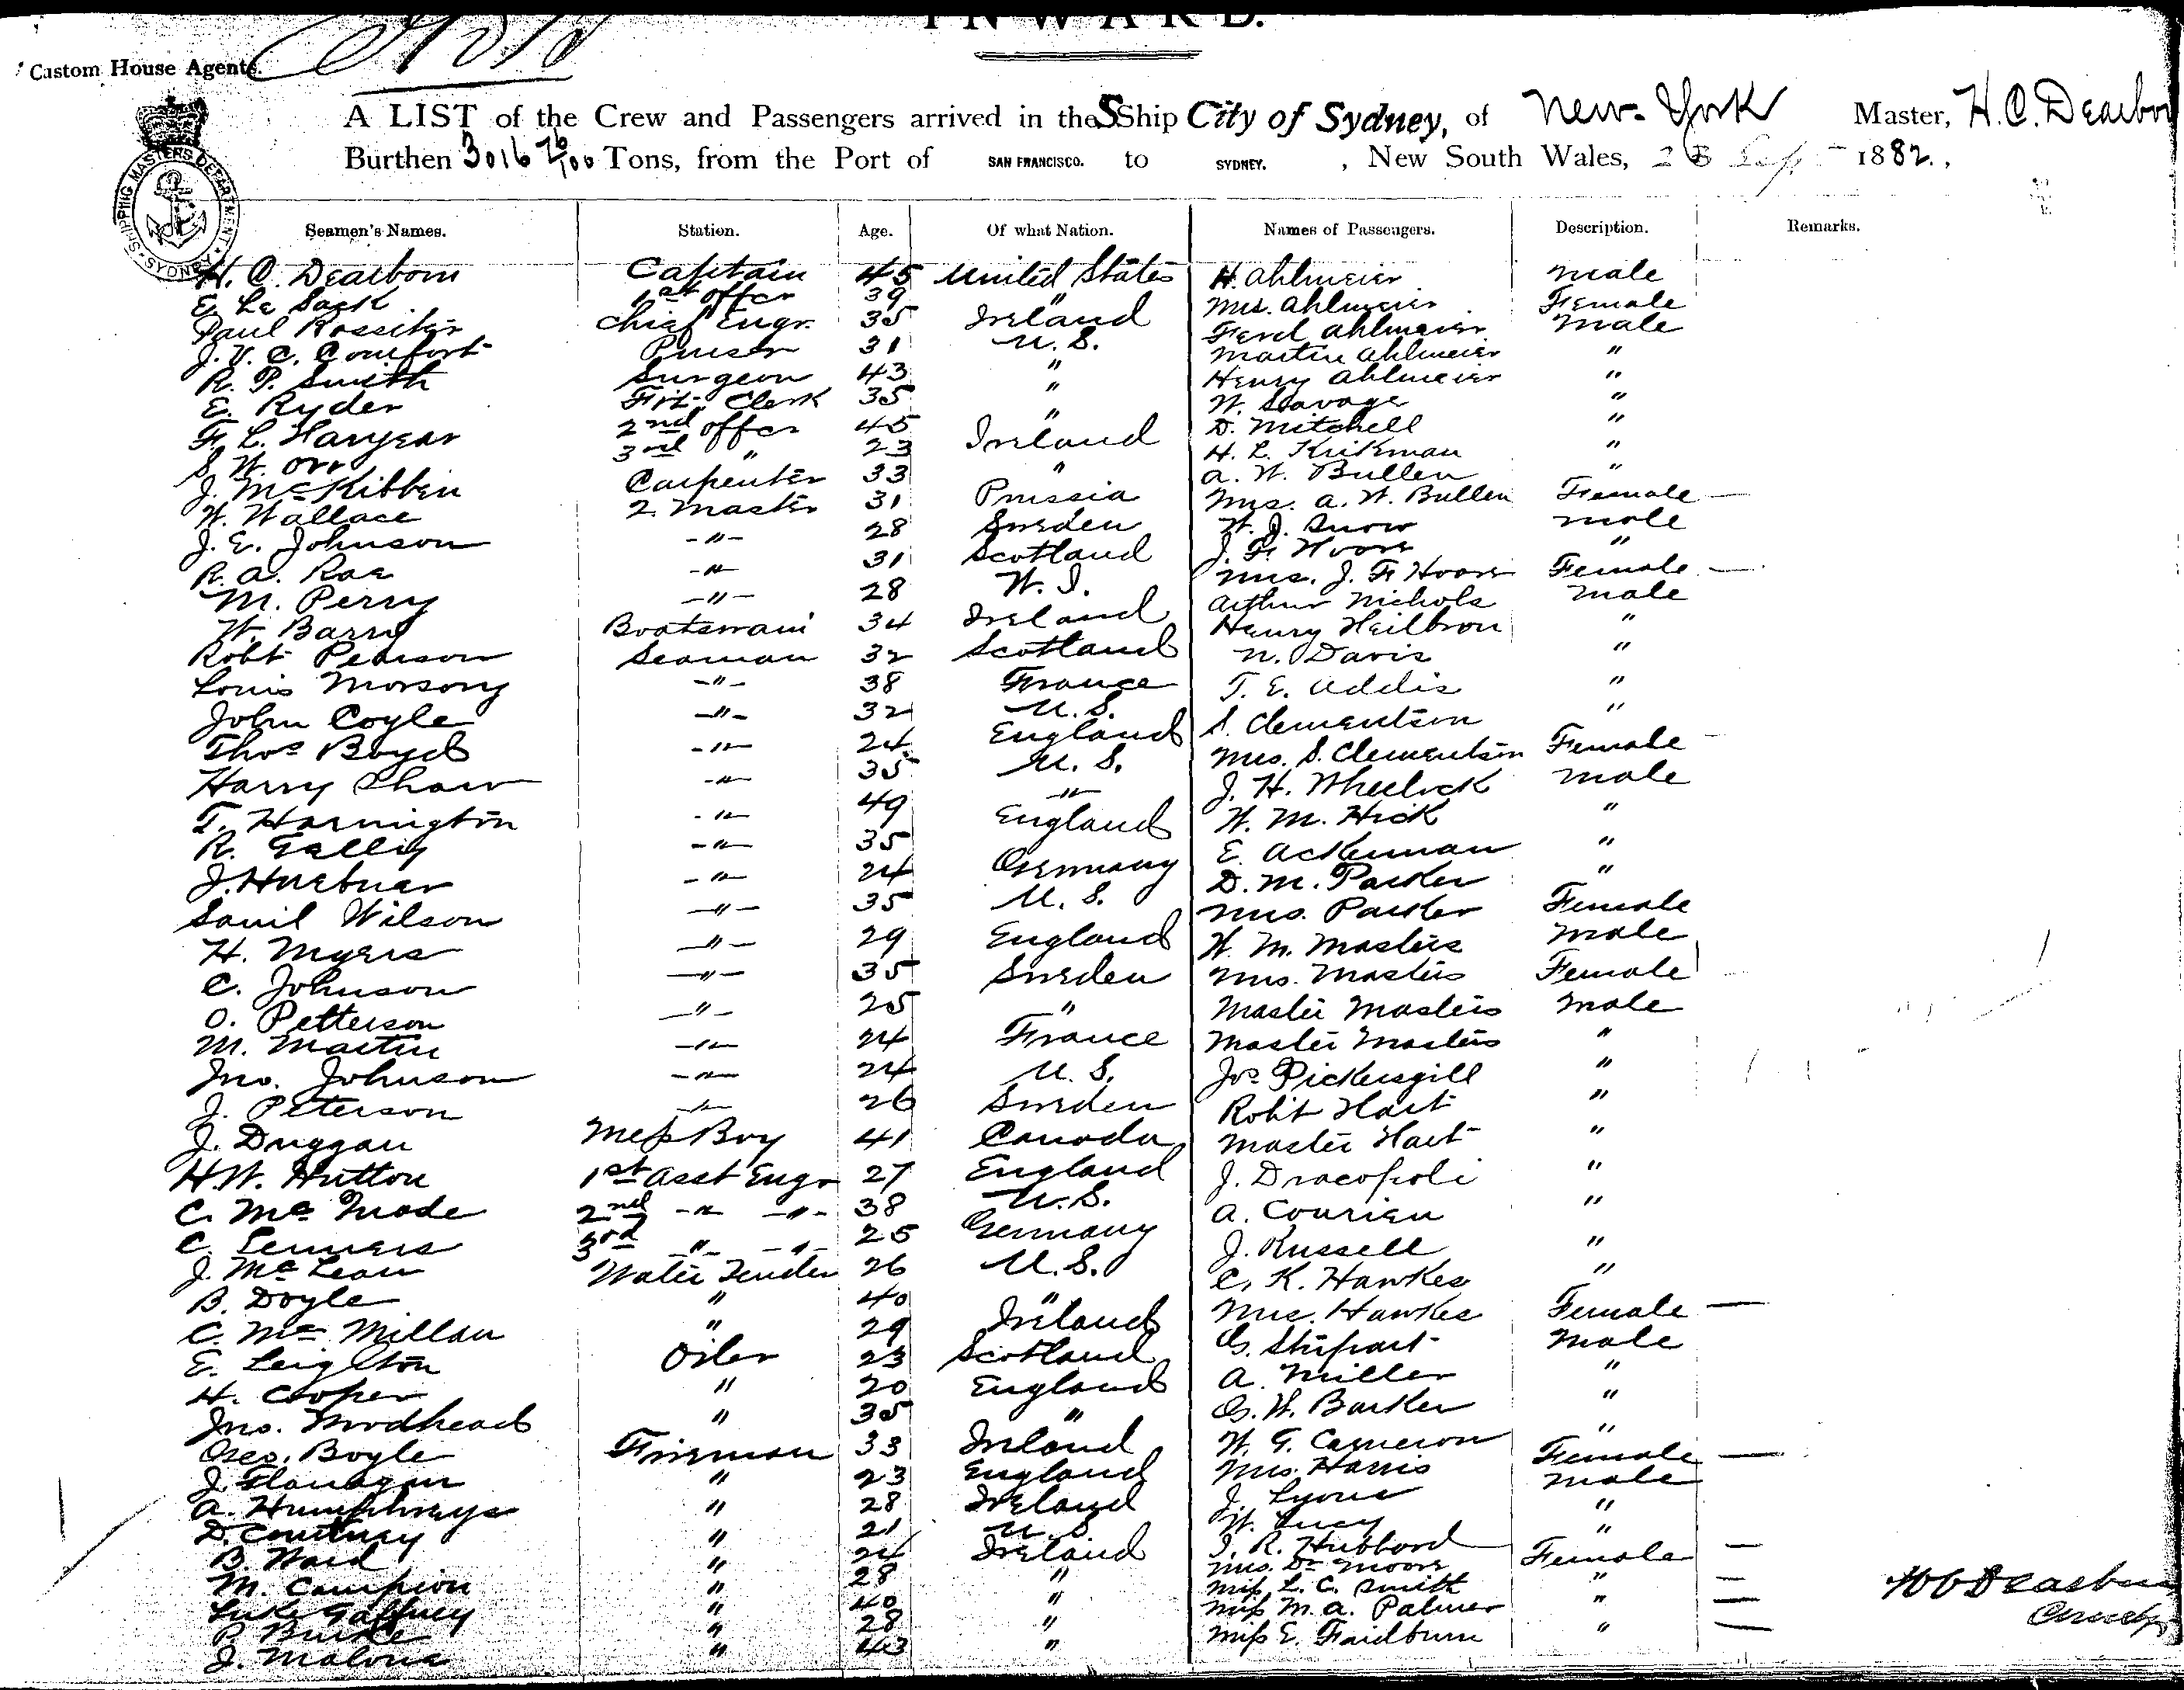 INWARD.
Custom House Agents.
A LIST of the Crew and Passengers arrived in the SShip City of Sydney, of New-York Master, H.C. Dearbor
Burthen 3016 76/100 Tons, from the Port of SAN FRANCISCO. to SYDNEY. , New South Wales, Sep 1882.,
SHIPPING MASTERS DEPARTMENT SYDNEY
Seamen's Names. Station. Age. Of what Nation. Names of Passengers. Description. Remarks.
H. C. Dearborn Captain 45 United States H. Ahlmeier Male
E. Le Sack 1st offer 39 " Mrs. Ahlmeier Female
Paul Rossiter Chief Engr. 35 Ireland Ferd Ahlmeier Male
J. V. C. Comfort Purser 31 U.S. Martin Ahlmeier "
R. P. Smith Surgeon 43 " Henry Ahlmeier "
E. Ryder Frt. Clerk 35 " W. Savage "
F. L. Haryear 2nd offer 45 " D. Mitchell "
S. W. Orr 3rd " 23 Ireland H. L. Kirkman "
J. McKibben Carpenter 33 " A. W. Bullen "
W. Wallace 2. Master 31 Prussia Mrs. A. W. Bullen Female —
J. E. Johnson -"- 28 Sweden W. J. Snow Male
R. A. Rae -"- 31 Scotland J. F. Hoare "
M. Perry -"- 28 W. I. Mrs. J. F. Hoare Female —
W. Barry Boatswain 34 Ireland Arthur Nichols Male
Robt Pearson Seaman 32 Scotland Henry Heilbron "
Louis Morsony -"- 38 France N. Davis "
John Coyle -"- 32 U.S. T. E. Addis "
Thos Boyd -"- 24 England S. Clementson "
Harry Shaw -"- 35 U.S. Mrs. S. Clementson Female
T. Harrington -"- 49 -"- J. H. Wheelock Male
R. Gelly -"- 35 England W. M. Hick "
J. Huebner -"- 24 Germany E. Ackerman "
Saml Wilson -"- 35 U.S. D. M. Parker "
H. Myers -"- 29 England Mrs. Parker Female
C. Johnson -"- 35 Sweden W. M. Masters Male
O. Petterson -"- 25 " Mrs. Masters Female
M. Martin -"- 24 France Master Masters Male
Jno. Johnson -"- 24 U.S. Master Masters "
J. Peterson -"- 26 Sweden Jos Pickersgill "
J. Duggan Mess Boy 41 Canada Robt Hart "
H. W. Hutton 1st Asst Engr 27 England Master Hart "
C. McMade 2nd -"- -"- 38 U.S. J. Dracopoli "
C. Lenners 3rd -"- -"- 25 Germany A. Courieu "
J. McLean Water Tender 26 U.S. J. Russell "
B. Doyle " 40 " C. K. Hawkes "
C. McMillan " 29 Ireland Mrs. Hawkes Female —
E. Leighton Oiler 23 Scotland G. Male
H. Cooper " 20 England A. Miller "
Jno. Woodhead " 35 " G. W. Barker "
Geo. Boyle Fireman 33 Ireland W. G. Cameron "
J. Flanagan " 23 England Mrs. Harris Female —
A. Humphreys " 28 Ireland J. Lyons Male
D. Courtney " 21 U.S. W. Lucy "
B. Ward " 24 Ireland J. R. Hubbard "
M. Campion " 28 " Mrs. Dr Moore Female —
Luke Gaffney " 40 " Miss L. C. Smith " —
P. Burke " 28 " Miss M. A. Palmer " —
J. Malone " 43 " Miss E. Faidburn " —